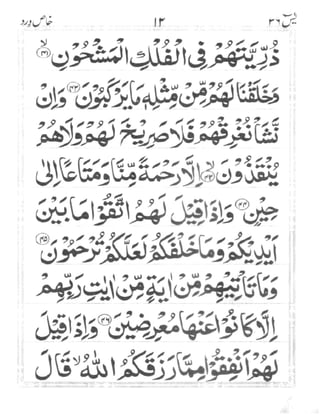 یٰسٓ ۳۶ ۱۲ خاص ورد
ذُرِّيَّتَهُمْ فِي الْفُلْكِ الْمَشْحُوْنِ ﴿۴۱﴾
وَخَلَقْنَا لَهُمْ مِّنْ مِّثْلِهٖ مَا يَرْكَبُوْنَ ﴿۴۲﴾ وَاِنْ
نَّشَاْ نُغْرِقْهُمْ فَلَا صَرِيْخَ لَهُمْ وَلَا هُمْ
يُنْقَذُوْنَ ﴿۴۳﴾ اِلَّا رَحْمَةً مِّنَّا وَمَتَاعًا اِلٰى
حِيْنٍ ﴿۴۴﴾ وَاِذَا قِيْلَ لَهُمُ اتَّقُوْا مَا بَيْنَ
اَيْدِيْكُمْ وَمَا خَلْفَكُمْ لَعَلَّكُمْ تُرْحَمُوْنَ ﴿۴۵﴾
وَمَا تَاْتِيْهِمْ مِّنْ اٰيَةٍ مِّنْ اٰيٰتِ رَبِّهِمْ
اِلَّا كَانُوْا عَنْهَا مُعْرِضِيْنَ ﴿۴۶﴾ وَاِذَا قِيْلَ
لَهُمْ اَنْفِقُوْا مِمَّا رَزَقَكُمُ اللّٰهُ ۙ قَالَ